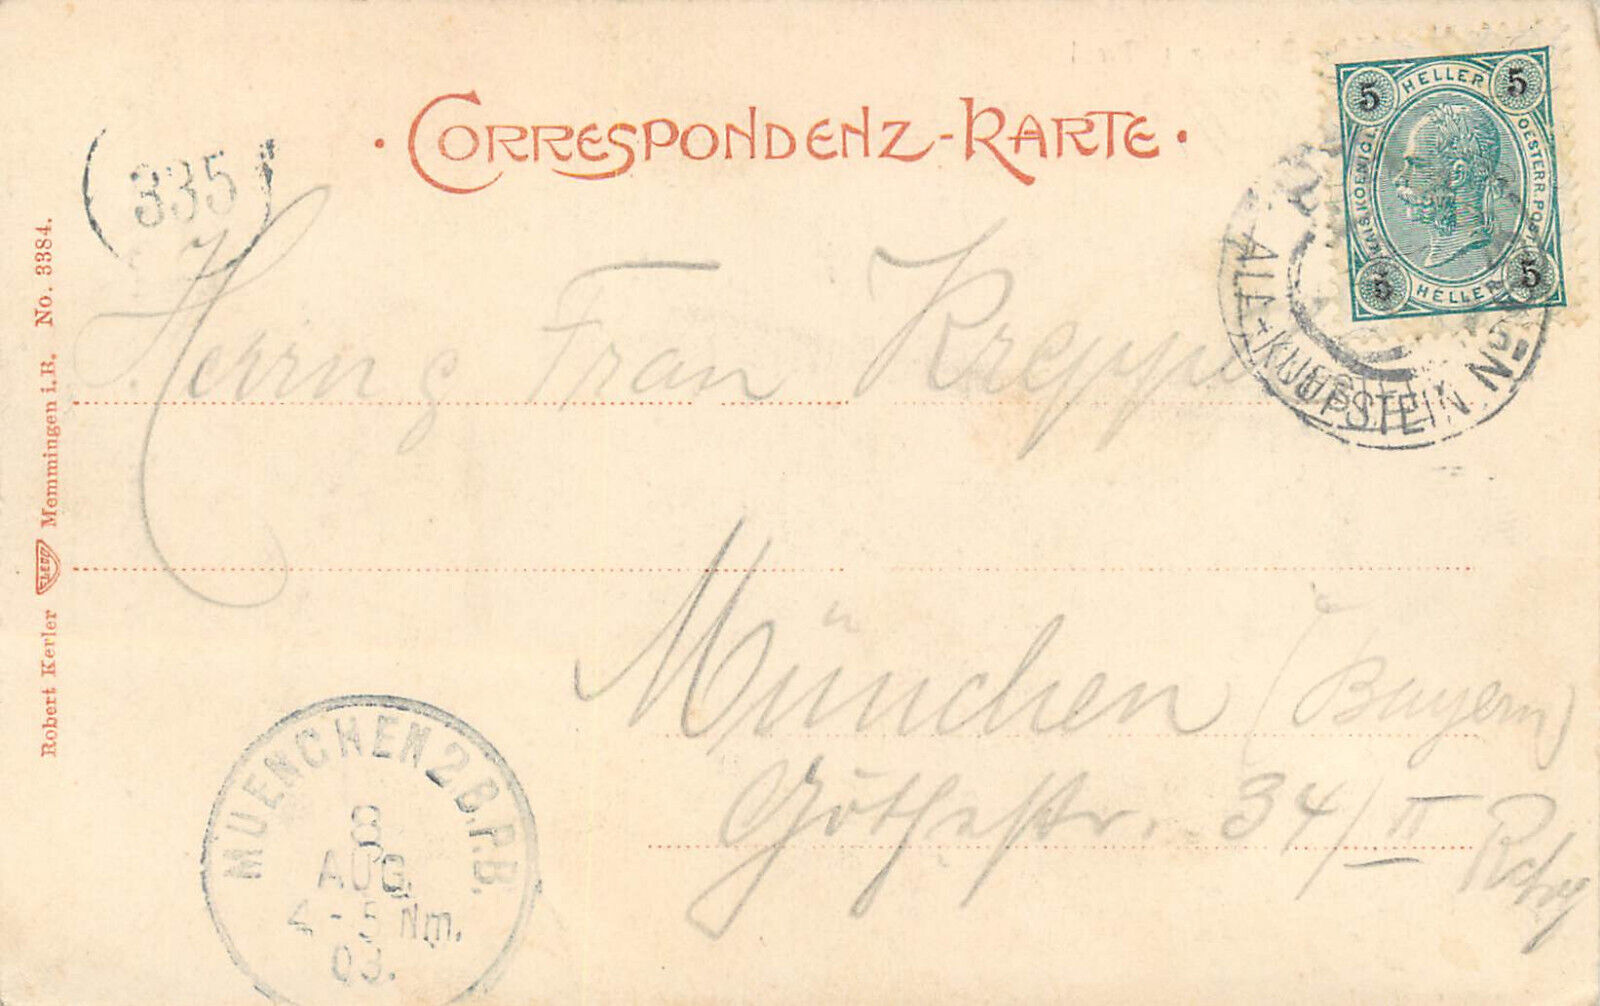 · CORRESPONDENZ-KARTE ·
5 HELLER 5
KAIS. KOENIGL.
OESTERR. POST
5 HELLER 5
335
KUFSTEIN
Herrn g Fran Kreppe
München (Bayern)
GötheStr. 34/II
MUENCHEN 2 C.P.B.
8
AUG.
4-5 Nm.
03.
Robert Kerler Memmingen i.B. No. 3384.